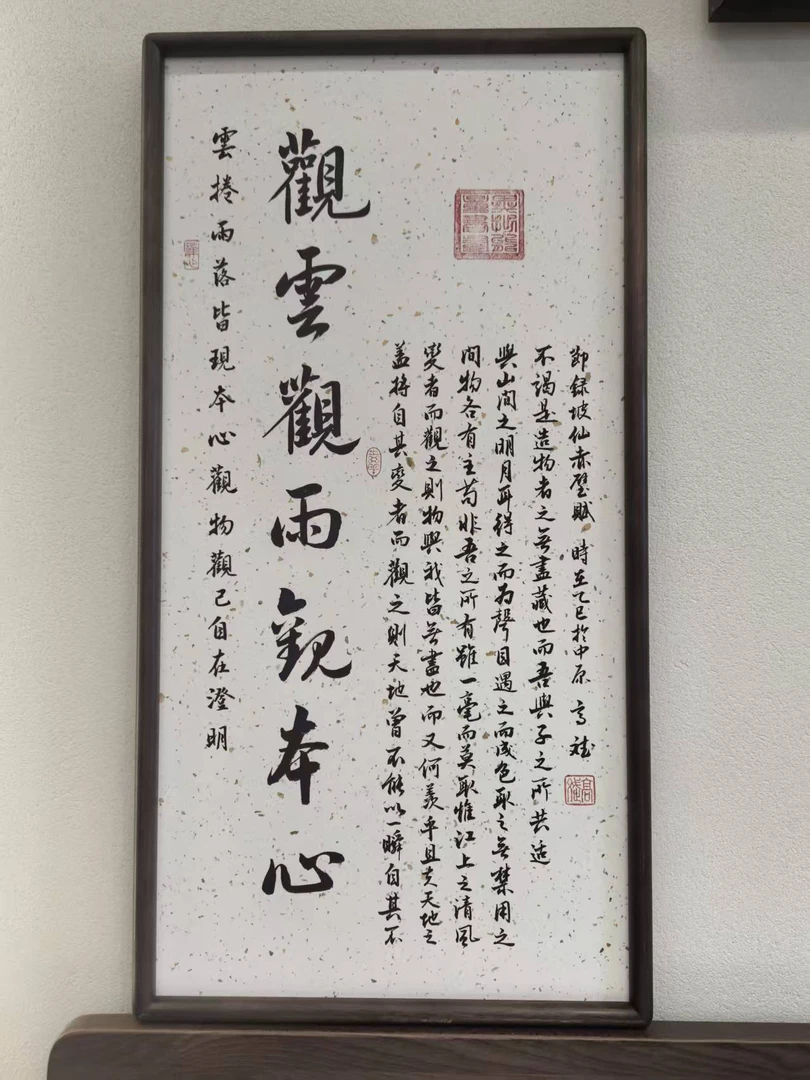 雲捲雨落皆現本心觀物觀己自在澄明
觀雲觀雨觀本心
蓋將自其變者而觀之則天地曾不能以一瞬自其不
變者而觀之則物與我皆無盡也而又何羨乎且夫天地之
間物各有主苟非吾之所有雖一毫而莫取惟江上之清風
與山間之明月耳得之而为聲目遇之而成色取之無禁用之
不竭是造物者之無盡藏也而吾與子之所共适
節録坡仙赤壁賦 時在乙巳於中原 高斌